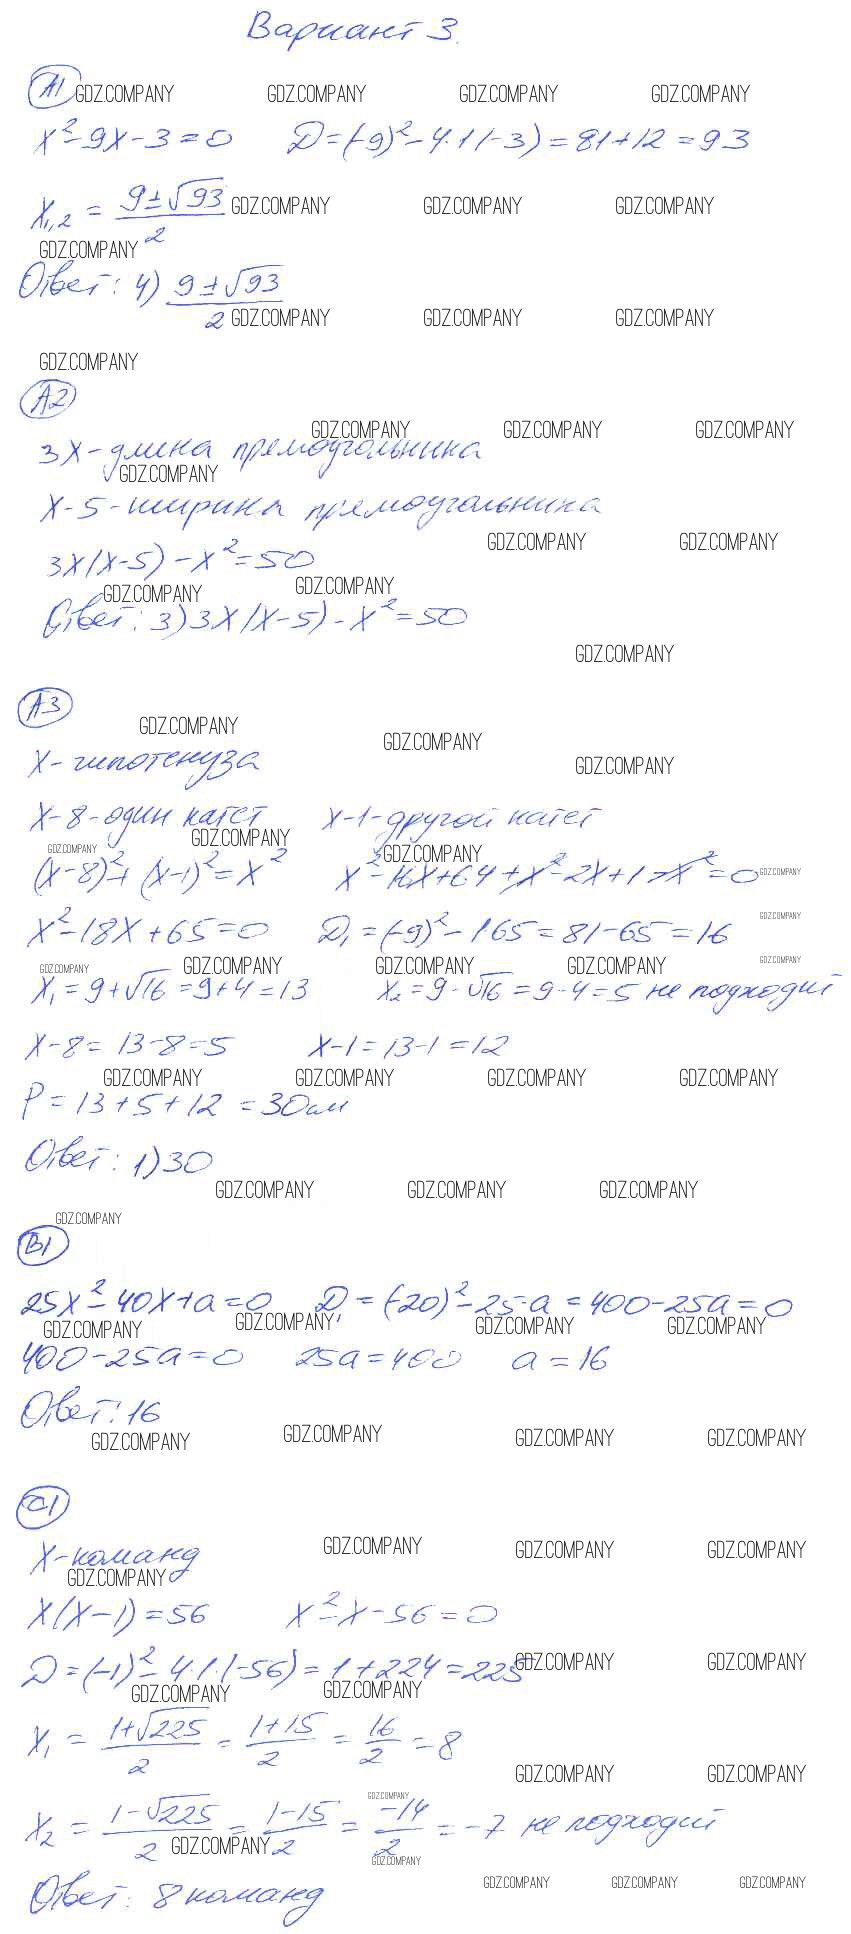 Вариант 3.
A1 GDZ.COMPANY GDZ.COMPANY GDZ.COMPANY GDZ.COMPANY
x²-9x-3=0 D=(-9)²-4·1(-3)=81+12=93
x₁,₂ = (9±√93)/2 GDZ.COMPANY GDZ.COMPANY GDZ.COMPANY
GDZ.COMPANY
Ответ: 4) (9±√93)/2
GDZ.COMPANY GDZ.COMPANY GDZ.COMPANY
GDZ.COMPANY
A2
GDZ.COMPANY GDZ.COMPANY GDZ.COMPANY
3x-длина прямоугольника
GDZ.COMPANY
x-5-ширина прямоугольника
GDZ.COMPANY GDZ.COMPANY
3x(x-5)-x²=50
GDZ.COMPANY GDZ.COMPANY
Ответ: 3) 3x(x-5)-x²=50
GDZ.COMPANY
A3
GDZ.COMPANY GDZ.COMPANY
x-гипотенуза GDZ.COMPANY
x-8-один катет x-1-другой катет
GDZ.COMPANY GDZ.COMPANY GDZ.COMPANY
(x-8)²+(x-1)²=x² x²-16x+64+x²-2x+1-x²=0 GDZ.COMPANY
GDZ.COMPANY
x²-18x+65=0 D₁=(-9)²-1·65=81-65=16
GDZ.COMPANY GDZ.COMPANY GDZ.COMPANY GDZ.COMPANY GDZ.COMPANY
x₁=9+√16=9+4=13 x₂=9-√16=9-4=5 не подходит
x-8=13-8=5 x-1=13-1=12
GDZ.COMPANY GDZ.COMPANY GDZ.COMPANY GDZ.COMPANY
P=13+5+12=30см
Ответ: 1) 30
GDZ.COMPANY GDZ.COMPANY GDZ.COMPANY
GDZ.COMPANY
B1
25x²-40x+a=0 D₁=(-20)²-25·a=400-25a=0
GDZ.COMPANY GDZ.COMPANY GDZ.COMPANY GDZ.COMPANY
400-25a=0 25a=400 a=16
Ответ: 16
GDZ.COMPANY GDZ.COMPANY GDZ.COMPANY GDZ.COMPANY
C1
GDZ.COMPANY GDZ.COMPANY GDZ.COMPANY
x-команд
GDZ.COMPANY
x(x-1)=56 x²-x-56=0
D=(-1)²-4·1·(-56)=1+224=225 GDZ.COMPANY GDZ.COMPANY
GDZ.COMPANY GDZ.COMPANY
x₁ = (1+√225)/2 = (1+15)/2 = 16/2 = 8
GDZ.COMPANY GDZ.COMPANY
GDZ.COMPANY
x₂ = (1-√225)/2 = (1-15)/2 = -14/2 = -7 не подходит
GDZ.COMPANY
GDZ.COMPANY
Ответ: 8 команд GDZ.COMPANY GDZ.COMPANY GDZ.COMPANY